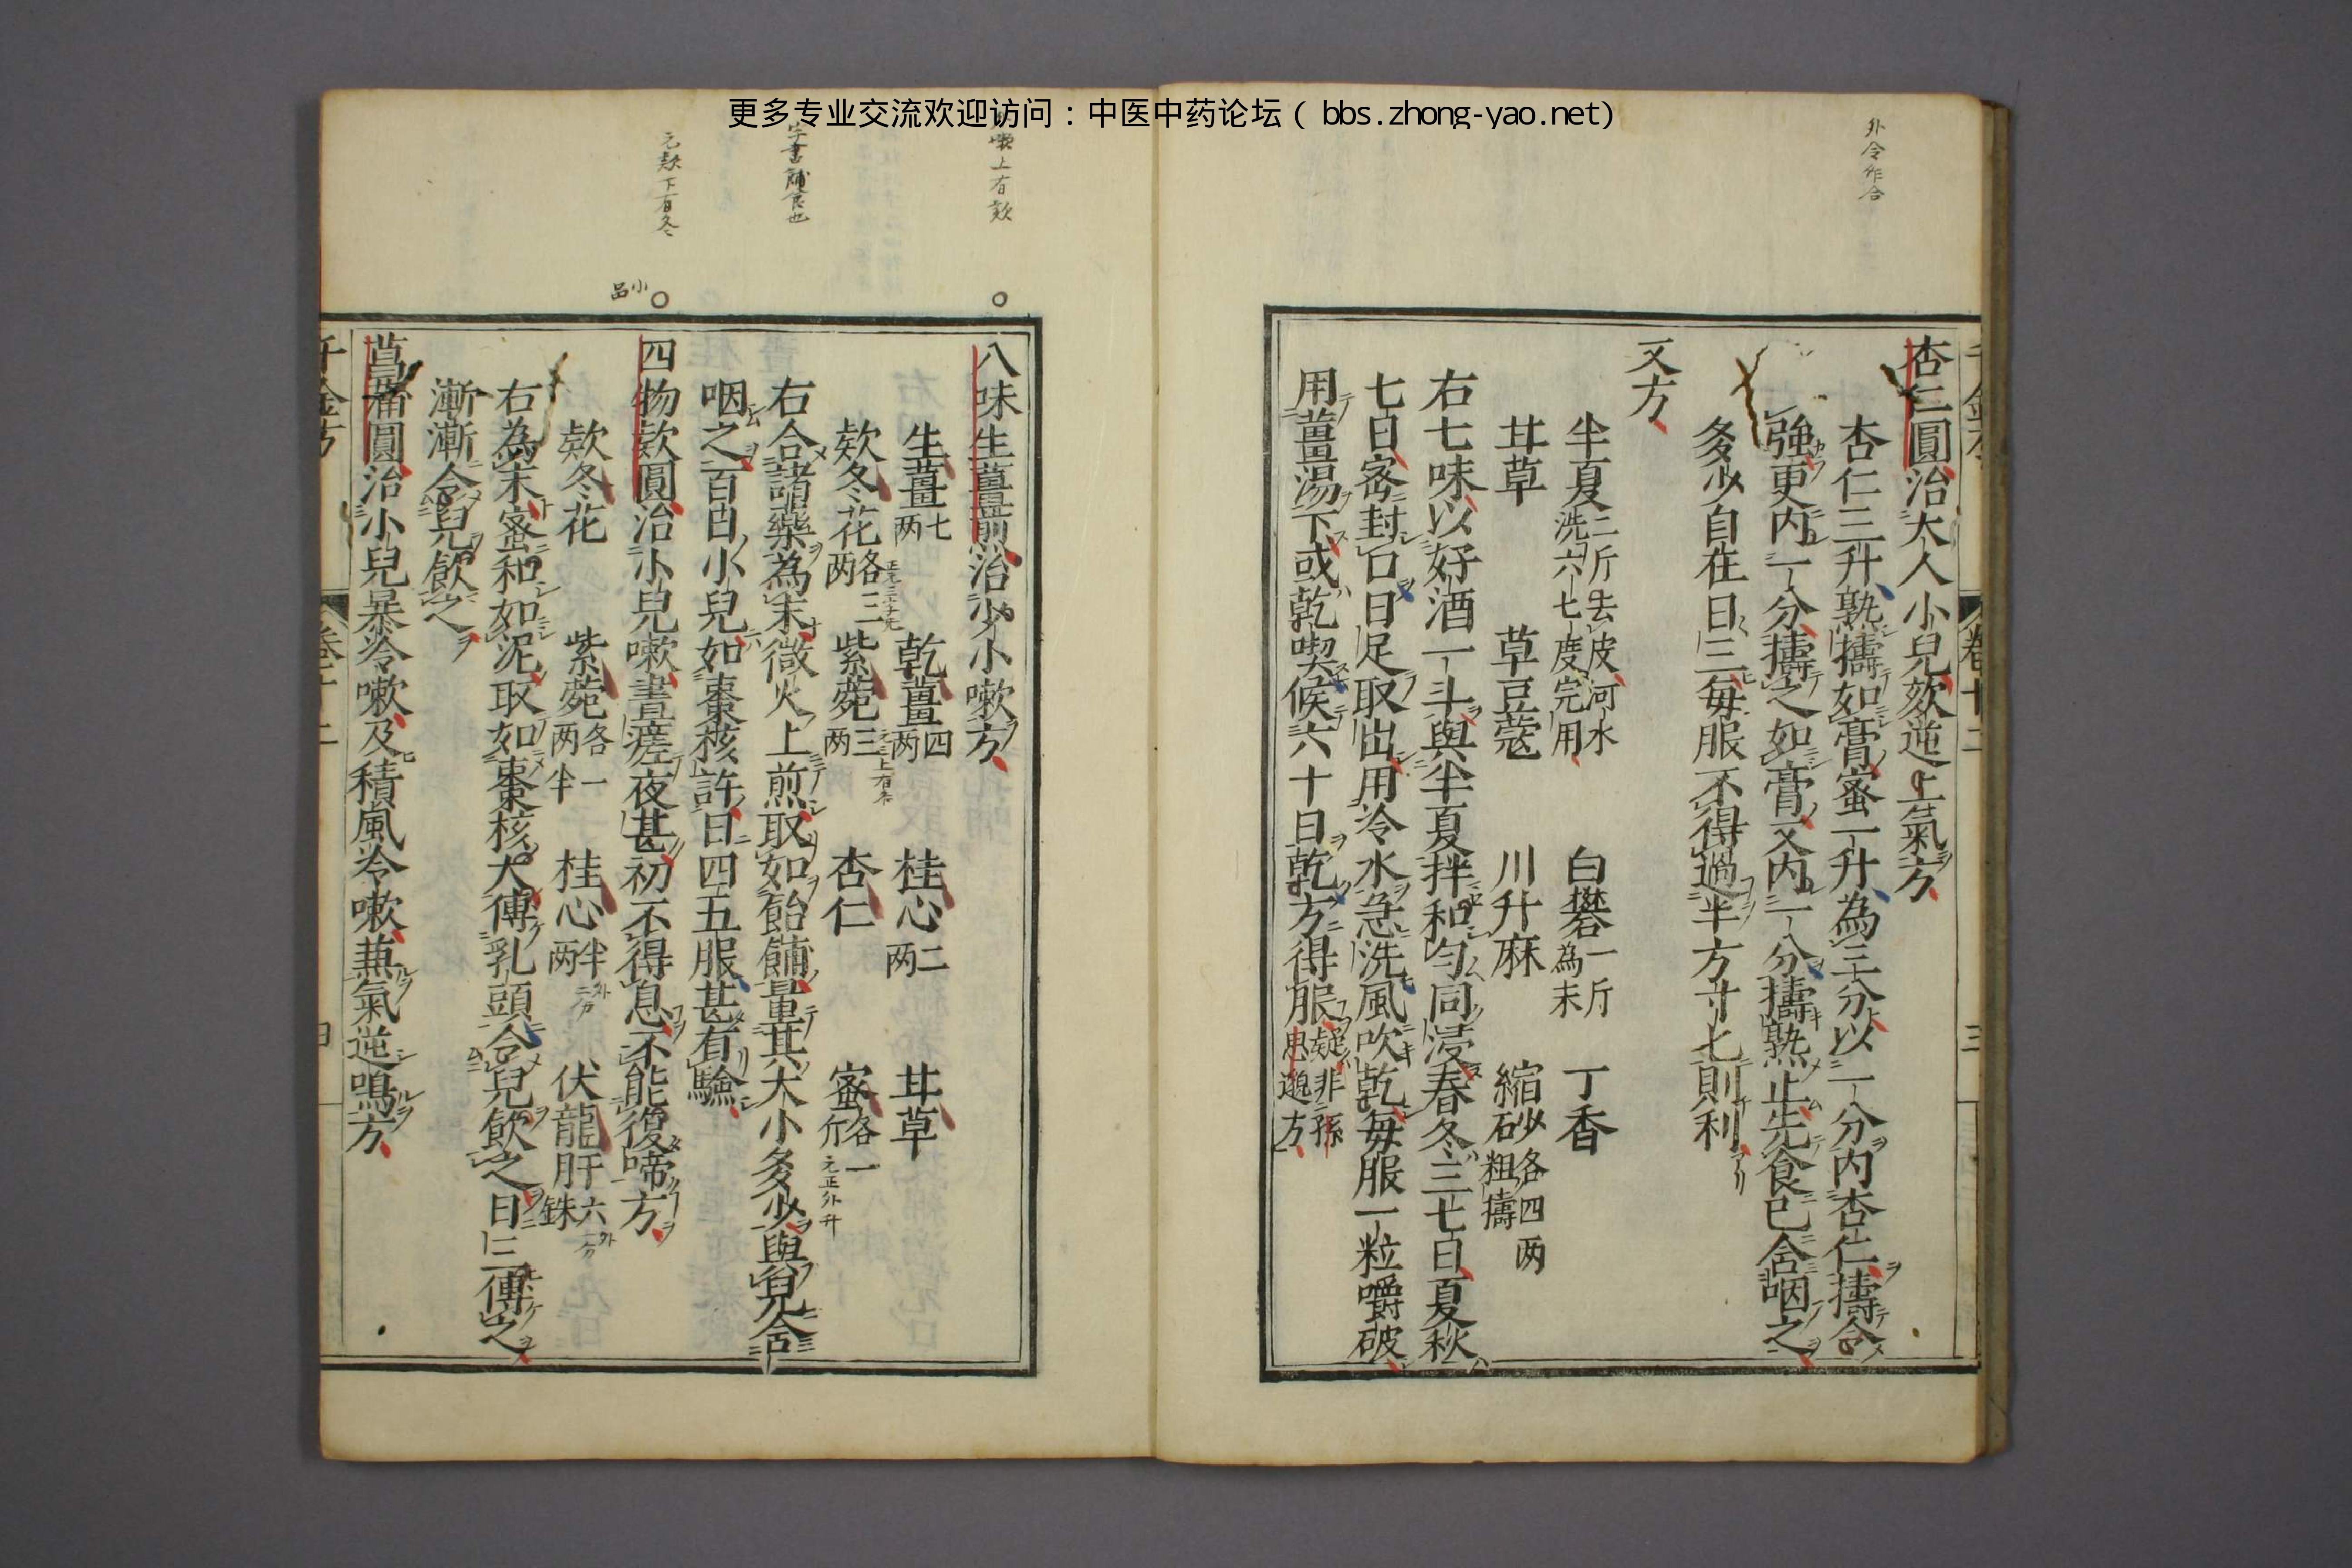 更多专业交流欢迎访问：中医中药论坛（bbs.zhong-yao.net）
外令作合
杏仁圓治大人小兒欬逆上氣方
杏仁三升熟擣如膏蜜一升為三分以一分内杏仁擣令
強更内一分擣之如膏又内一分擣熟止先食已含咽之
多少自在日三每服不得過半方寸匕則利
又方
半夏二斤去皮河水洗六七度完用 白礬一斤為末 丁香
甘草 草豆蔻 川升麻 縮砂各四两粗擣
右七味以好酒一斗與半夏拌和勻同浸春冬三七日夏秋
七日密封口日足取出用冷水急洗風吹乾每服一粒嚼破
用薑湯下或乾喫候六十日乾方得服疑非孫思邈方
嗽上有欬
八味生薑煎治少小嗽方
生薑七两 乾薑四两 桂心二两 甘草
欵冬花各三两 紫菀三两 杏仁 蜜各一斤
元正外升
字書餔食也
右合諸藥為末微火上煎取如飴餔量其大小多少與兒含
咽之百日小兒如棗核許日四五服甚有驗
元欵下有冬
小品
四物欵圓治小兒嗽晝瘥夜甚初不得息不能復啼方
欵冬花 紫菀各一两半 桂心半两 伏龍肝六銖
外二分
外一分
右為末蜜和如泥取如棗核大傅乳頭令兒飲之日三傅之
漸漸令兒飲之
菖蒲圓治小兒暴冷嗽及積風冷嗽兼氣逆鳴方
千金方 卷十二